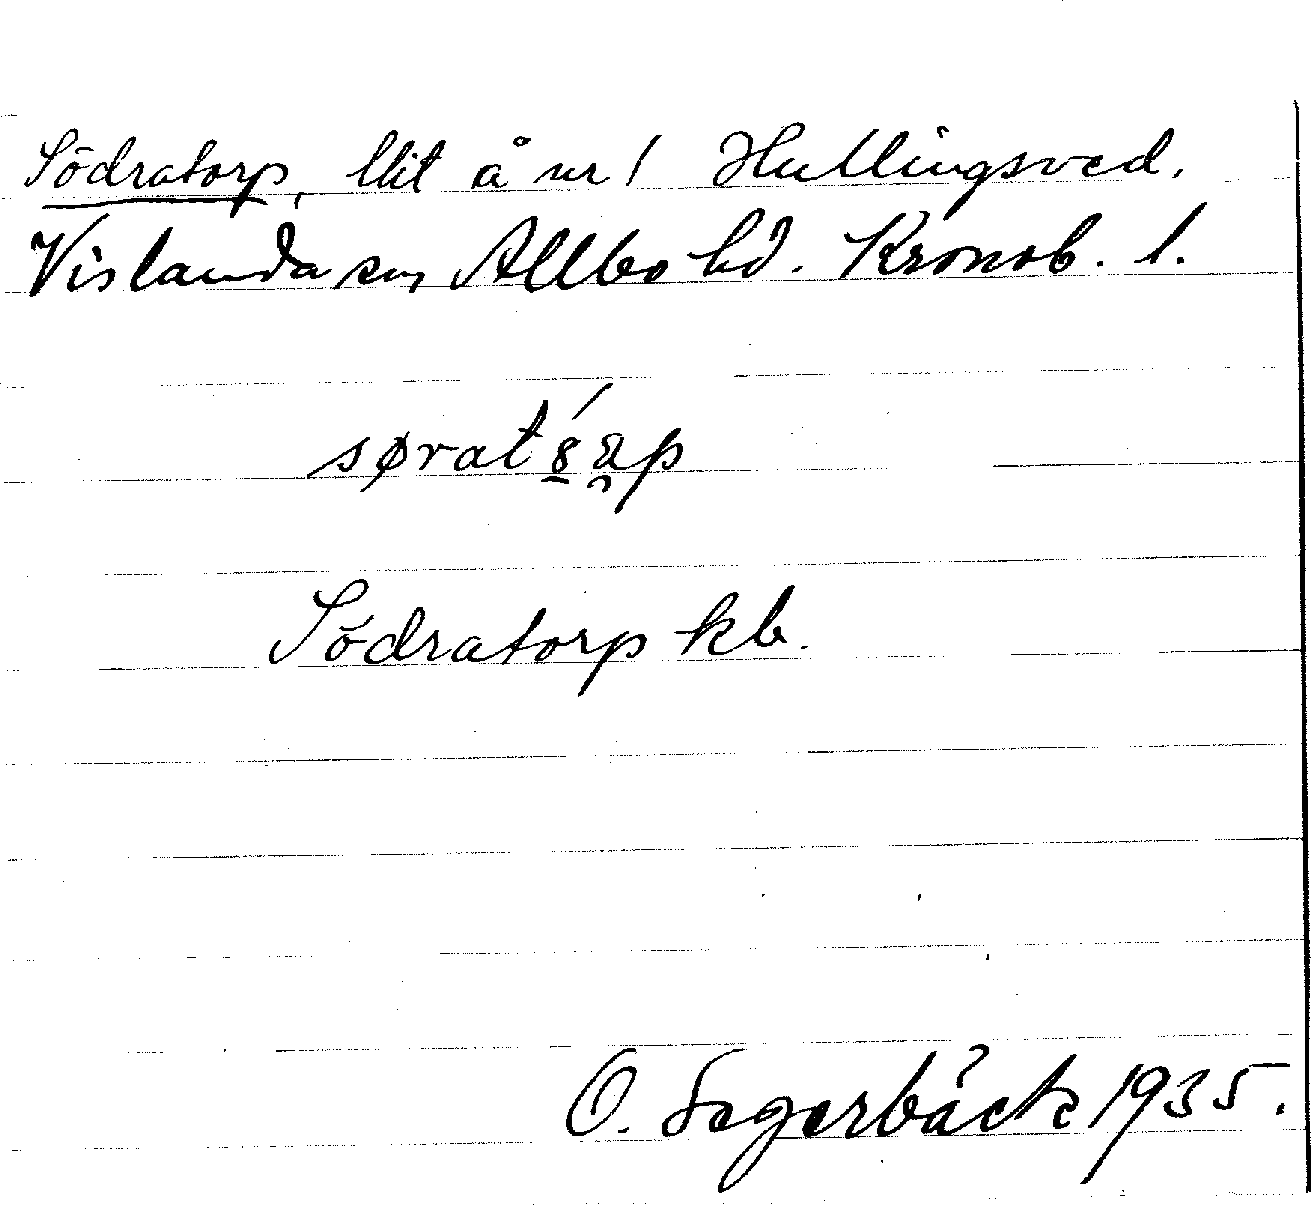 Södratorp, lht å nr 1 Hullingsved.
Vislanda sn, Allbo hd. Kronob. l.
Södratorp kb.
O. Segerbäck 1935.